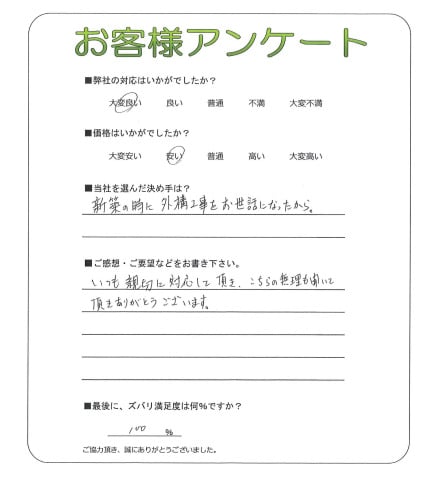 お客様アンケート
■弊社の対応はいかがでしたか？
大変良い　良い　普通　不満　大変不満
■価格はいかがでしたか？
大変安い　安い　普通　高い　大変高い
■当社を選んだ決め手は？
新築の時に外構工事をお世話になったから。
■ご感想・ご要望などをお書き下さい。
いつも親切に対応して頂き、こちらの無理も聞いて
頂きありがとうございます。
■最後に、ズバリ満足度は何%ですか？
100 %
ご協力頂き、誠にありがとうございました。